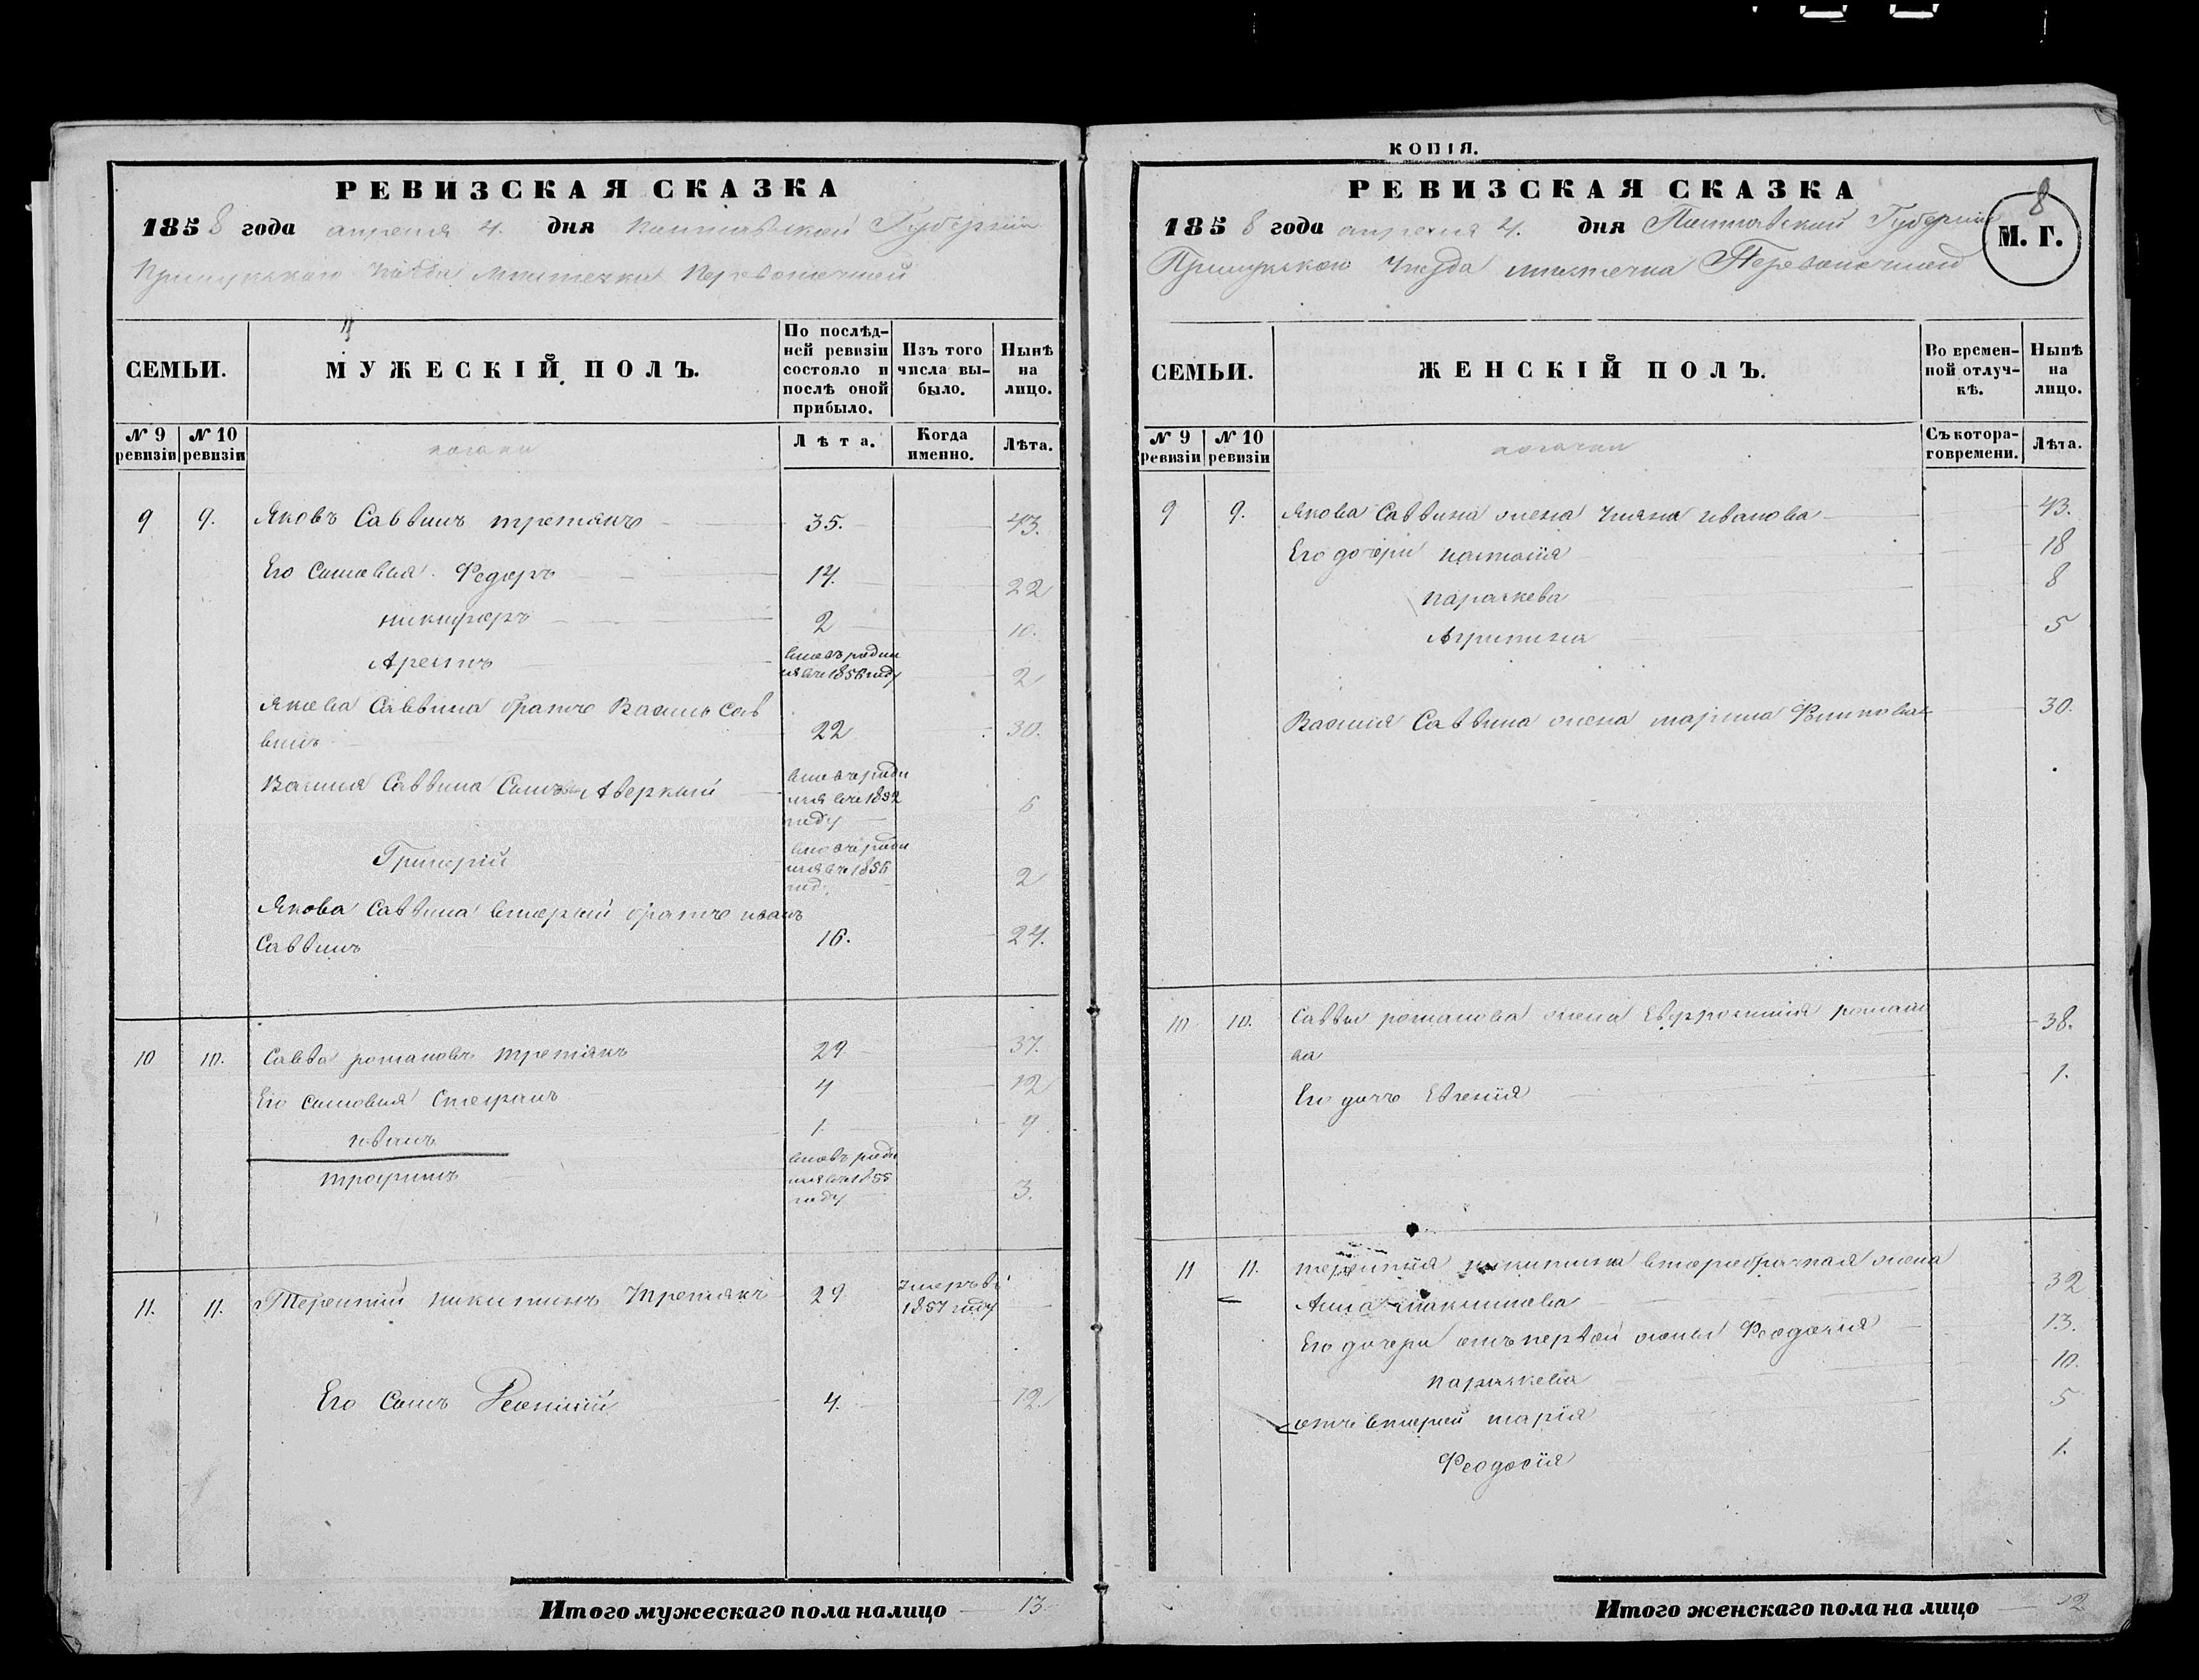 РЕВИЗСКАЯ СКАЗКА
1858 года апреля 4. дня Полтавской Губернии
Прилукского Уезда Местечка Переволочной
СЕМЬИ.
МУЖЕСКІЙ ПОЛЪ.
По послѣд-
ней ревизіи
состояло и
послѣ оной
прибыло.
Изъ того
числа вы-
было.
Нынѣ
на
лицо.
№ 9
ревизіи
№ 10
ревизіи
козаки
Лѣта.
Когда
именно.
Лѣта.
9 9. Яковъ Саввинъ Третякъ 35. 43.
Его Сыновья Федоръ 14. 22
Никифоръ 2 10.
вновь роди
лся въ 1856 году 2
Якова Саввина братъ Василь Сав
винъ 22 30.
Василя Саввина Сынъ Аверкий
вновь роди
лся въ 1852
году 6
Григорій
вновь роди
лся въ 1856
год. 2
Якова Саввина вторый братъ Иванъ
Саввинъ 16. 24.
10 10. Савва Романовъ Третякъ 29 37.
Его Сыновья Стефанъ 4 12
Иванъ 1. 9
Трофимъ
вновь роди
лся въ 1855
году 3.
11. 11. Терентий Никитинъ Третякъ 29 Умеръ въ
1857 году
Его Сынъ Леонтий 4. 12.
Итого мужескаго пола налицо 13
КОПІЯ.
РЕВИЗСКАЯ СКАЗКА
8
М. Г.
1858 года апреля 4. дня Полтавской Губернии
Прилукского Уезда местечка Переволочной
СЕМЬИ.
ЖЕНСКІЙ ПОЛЪ.
Во времен-
ной отлуч-
кѣ.
Нынѣ
на
лицо.
№ 9
ревизіи
№ 10
ревизіи
козачки
Съ котора-
го времени.
Лѣта.
9 9. Якова Саввина жена Ульяна Иванова 43.
Его дочери Наталія 18
Параскева 8
Агрипина 5
Василя Саввина жена Марина Филипова 30.
10 10. Саввы Романова жена Евфросинія Романо
ва 38.
Его дочь Евгенія 1.
11 11. Терентія Никитина второбрачная жена
Анна Максимова 32
Его дочери отъ первой жены Феодосія 13.
Параскева 10.
отъ второй Марія 5
Феодосія 1.
Итого женскаго пола на лицо 12